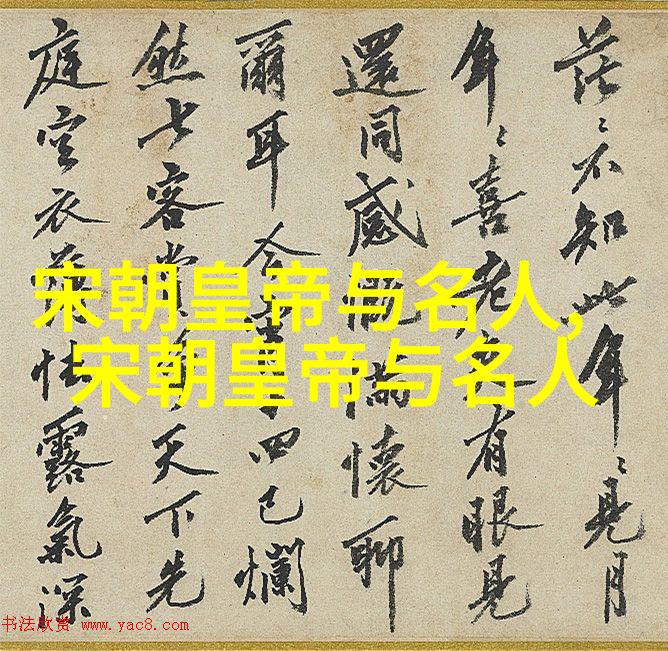 茫〻不知此年〻見月
年〻喜老
有眼見
還同感慨滿懷聊
爾耳今
四已爛
然七客
天下先
庭空衣
怯露氣深
宋朝皇帝与名人,
宋朝皇帝与名人
书法欣赏 www.yac8.com